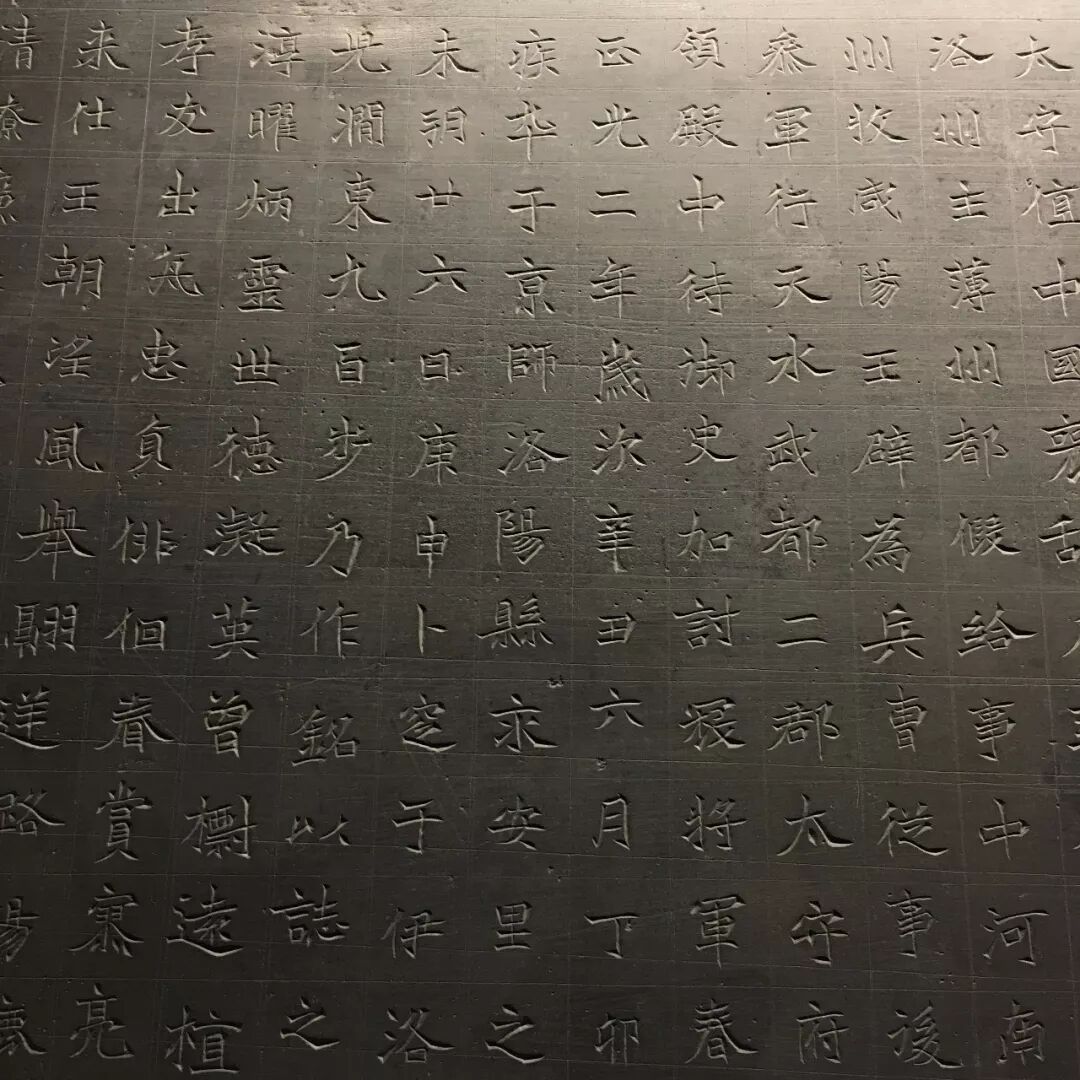 太守值中國喪
洛州主薄州都假给事中河南
州牧咸陽王辟為兵曹從事後
叅軍行天水武都二郡太守府
領殿中待御史加討寇將軍春
正光二年歲次辛丑六月丁卯
疾卒于京師洛陽縣永安里之
未朔廿六日庚申卜窆于伊洛
兆澗東九百步乃作銘以誌之
淳曜炳靈世德凝英曾櫥遠植
孝友出無忠貞俳佪眷賞寮亮
来仕王朝淫風舉翮路
清